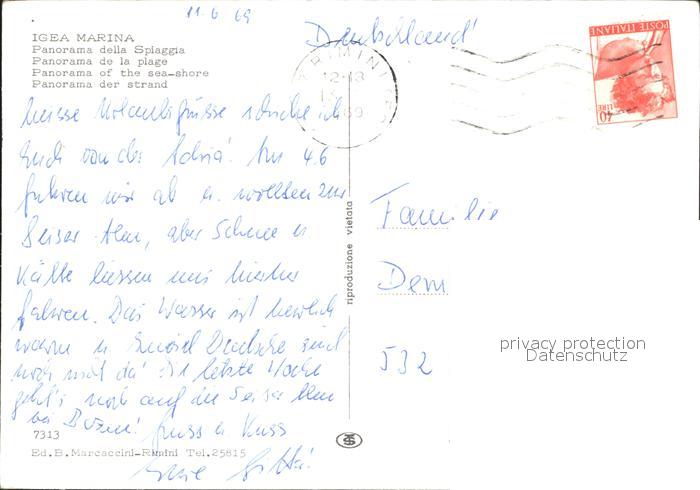 11.6.69
Deutschland!
IGEA MARINA
Panorama della Spiaggia
Panorama de la plage
Panorama of the sea-shore
Panorama der strand
RIMINI
12-13
69
POSTE ITALIANE
LIRE 40
Urlaubsgrüsse schicke ich
Euch von der Adria! Am 4.6
fuhren wir ab u. wollten zur
Seiser Alm, aber Schnee u
Kälte liessen uns hierher
fahren. Das Wasser ist herrlich
warm u. Deutsche sind
noch nicht da! Die letzte Woche
geht's noch auf die Seiser Alm
bei Bozen! Gruss u. Kuss
Eure Gitta!
riproduzione vietata
Familie
Dem
532
privacy protection
Datenschutz
7313
Ed. B. Marcaccini-Rimini Tel. 25815